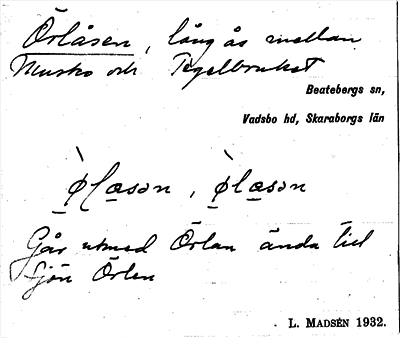 Örlåsen, lång ås mellan
Musko och Tegelbruket
Beatebergs sn,
Vadsbo hd, Skaraborgs län
Går utmed Örlan ända till
sjön Örlen
L. MADSÉN 1932.